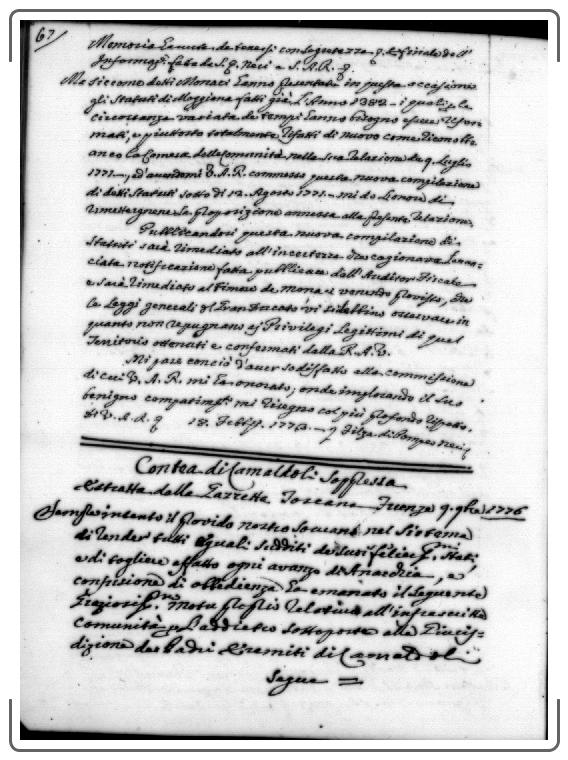 67
Memoria Venuta da tenersi con segretezza
Informaz. fatta da S. P. Neri a S. A. R.
Ma siccome detti Monaci hanno presentato in questa occasione
gli Statuti di Moggiona fatti già l'Anno 1382 - i quali p le
circostanze variate de tempi hanno bisogno essere Rifor-
mati, e piuttosto totalmente Rifatti di nuovo come
la Camera della Comunità nella sua Relazione de 9. Luglio
1771 -, ed avendomi V. A. R. commesso questa nuova compilazione
di detti Statuti sotto dì 12. Agosto 1771 - mi do l'onore di
Umettergnene la proporzione annessa alla presente Relazione.
Pubblicandosi questa nuova compilazione di
Statuti sarà Rimediato all'incertezza che cagionava
notificazione fatta pubblicare dall'Auditor Fiscale
e sarà Rimediato al timore de Monaci venendo provisto, che
le Leggi generali del Gran Ducato vi si debbino osservare in
quanto non repugnano a Privilegi Legittimi di quel
Territorio ottenuti e confermati dalla R. A. V.
Mi pare con ciò d'aver sodisfatto alla commissione
di cui V. A. R. mi ha onorato, onde implorando il suo
benigno compatim. mi Rassegno col più profondo Rispetto.
di V. A. R. 18. Febb. 1773 - Filza di Pompeo Neri
Contea di Camaldoli Soppressa
Estratta dalla Gazzetta Toscana Firenze 9. 9bre 1776
Sempre intento il provido nostro Sovrano nel Sistema
di Render tutti eguali i sudditi de suoi felicissmi Stati,
e di togliere affatto ogni avanzo di Anarchia, e
confusione di obbedienza ha emanato il seguente
Graziosis. Motu proprio Relativo all'infrascritta
Comunità p l'addietro sottoposta alla Giuris-
dizione de Padri Eremiti di Camaldoli
Segue =